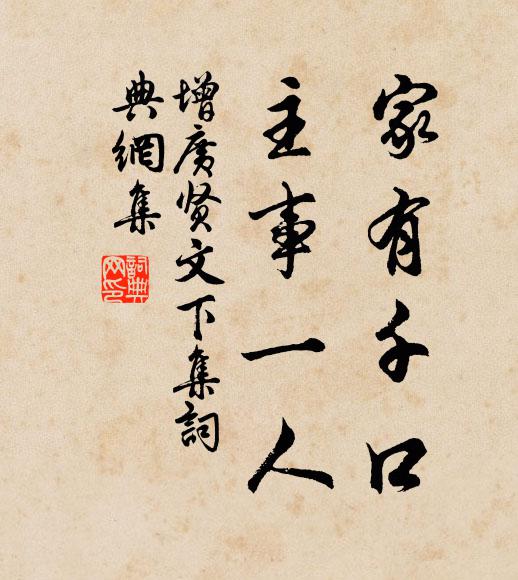 家有千口
主事一人
增廣贤文下集詞
典網集
詞典
网印